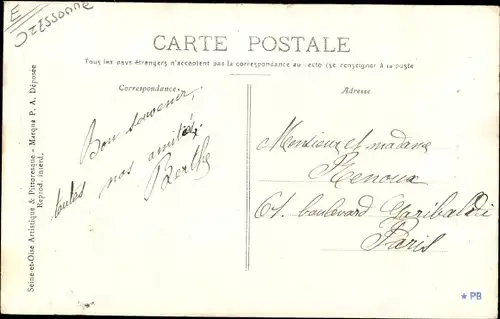 E
Essonne
CARTE POSTALE
Tous les pays étrangers n'acceptent pas la correspondance au recto (se renseigner à la poste
Correspondance
Adresse
Seine-et-Oise Artistique & Pittoresque - Marque P. A. Déposée
Reprod. interd.
Bon souvenir,
toutes nos amitiés.
Berthe
Monsieur et madame
Renoux
61. boulevard Garibaldi
Paris
* PB